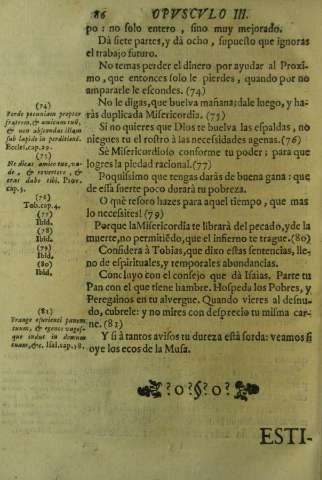 86 OPVSCVLO III.
po: no solo entero, sino muy mejorado.
Dà siete partes, y dà ocho, supuesto que ignoras
el trabajo futuro.
No temas perder el dinero por ayudar al Proxi-
mo, que entonces solo le pierdes, quando por no
ampararle le escondes. (74)
No le digas, que buelva mañana; dale luego, y ha-
ràs duplicada Misericordia. (75)
Si no quieres que Dios te buelva las espaldas, no
niegues tu el rostro à las necesidades agenas. (76)
Sè Misericordioso conforme tu poder; para que
logres la piedad racional. (77)
Poquissimo que tengas daràs de buena gana: que
de essa suerte poco dorarà tu pobreza.
O què tesoro hazes para aquel tiempo, que mas
lo necessites! (79)
Porque la Misericordia te librarà del pecado, y de la
muerte, no permitiẽdo, que el infierno te trague. (80)
Considera à Tobias, que dixo estas sentencias, lle-
no de espirituales, y temporales abundancias.
Concluyo con el consejo que dà Isaias. Parte tu
Pan con el que tiene hambre. Hospeda los Pobres, y
Peregrinos en tu alvergue. Quando vieres al desnu-
do, cubrele: y no mires con desprecio tu misma car-
ne. (81)
Y si à tantos avisos tu dureza està sorda: veamos si
oye los ecos de la Musa.
ESTI-
(74)
Perde pecuniam propter
fratrem, & amicum tuũ,
& non abscondas illam
sub lapide in perditionẽ.
Eccles. cap. 29.
(75)
Ne dicas amico tuo, va-
de, & revertere, &
cras dabo tibi. Prov.
cap. 3.
(76)
Tob. cap. 4.
(77)
Ibid.
(78)
Ibid.
(79)
Ibid.
(80)
Ibid.
(81)
Frange esurienti panem
tuum, & egenos vagos-
que induc in domum
tuam, &c. Isai. cap. 58.